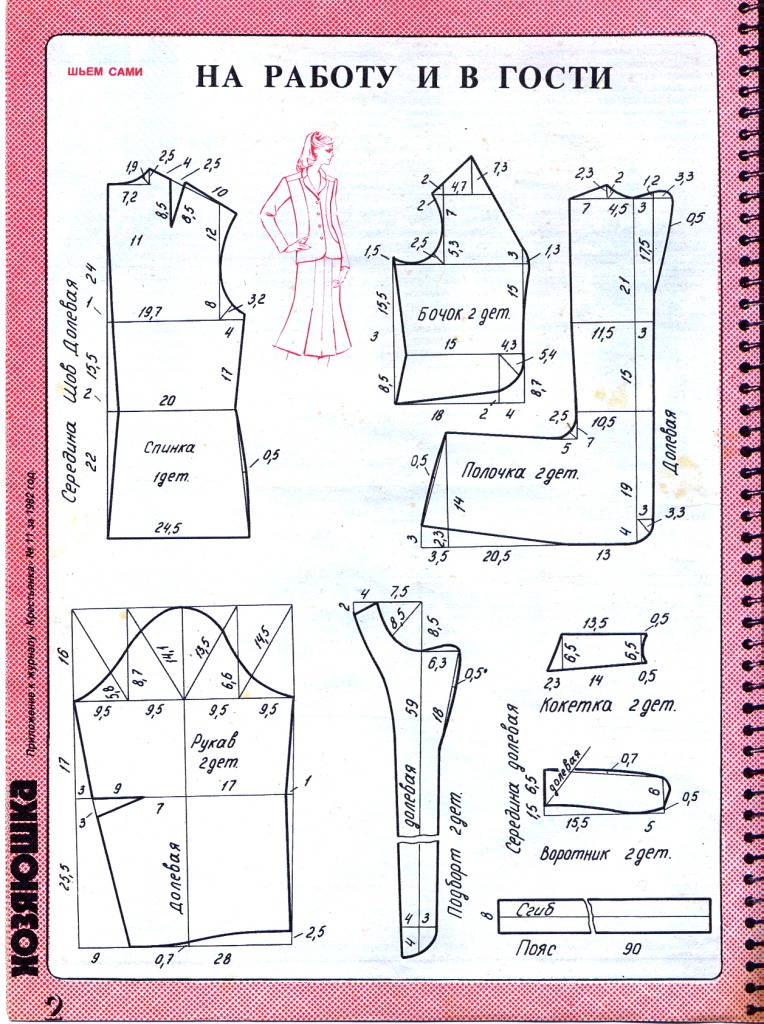 ШЬЕМ САМИ
НА РАБОТУ И В ГОСТИ
1,9
2,5
4
2,5
7,2
8,5
8,5
10
11
12
24
1
19,7
8
3,2
4
15,5
2
20
17
22
Середина Шов Долевая
Спинка
1 дет.
0,5
24,5
2
4,7
7,3
2
7
2,5
5,3
1,5
3
1,3
15,5
15
Бочок 2 дет.
3
15
4,3
5,4
8,5
8,7
18
2
4
2,3
2
1,2
3,3
7
4,5
3
0,5
17,5
21
11,5
3
15
2,5
10,5
5
7
Долевая
0,5
Полочка 2 дет.
14
19
3
3,3
4
3
2,3
3,5
20,5
13
16
5,8
8,7
14,1
13,5
6,6
14,5
9,5
9,5
9,5
9,5
Рукав
2 дет.
17
3
9
17
1
3
7
25,5
Долевая
2,5
9
0,7
28
4
7,5
2
8,5
8,5
6,3
0,5
59
18
долевая
Подборт 2 дет.
4
3
4
13,5
0,5
6,5
6,5
2,3
14
0,5
Кокетка 2 дет.
Середина долевая
долевая
0,7
6,5
1,5
8
0,5
15,5
5
Воротник 2 дет.
8
Сгиб
Пояс
90
ХОЗЯЮШКА
Приложение к журналу «Крестьянка» № 11 за 1982 год.
2